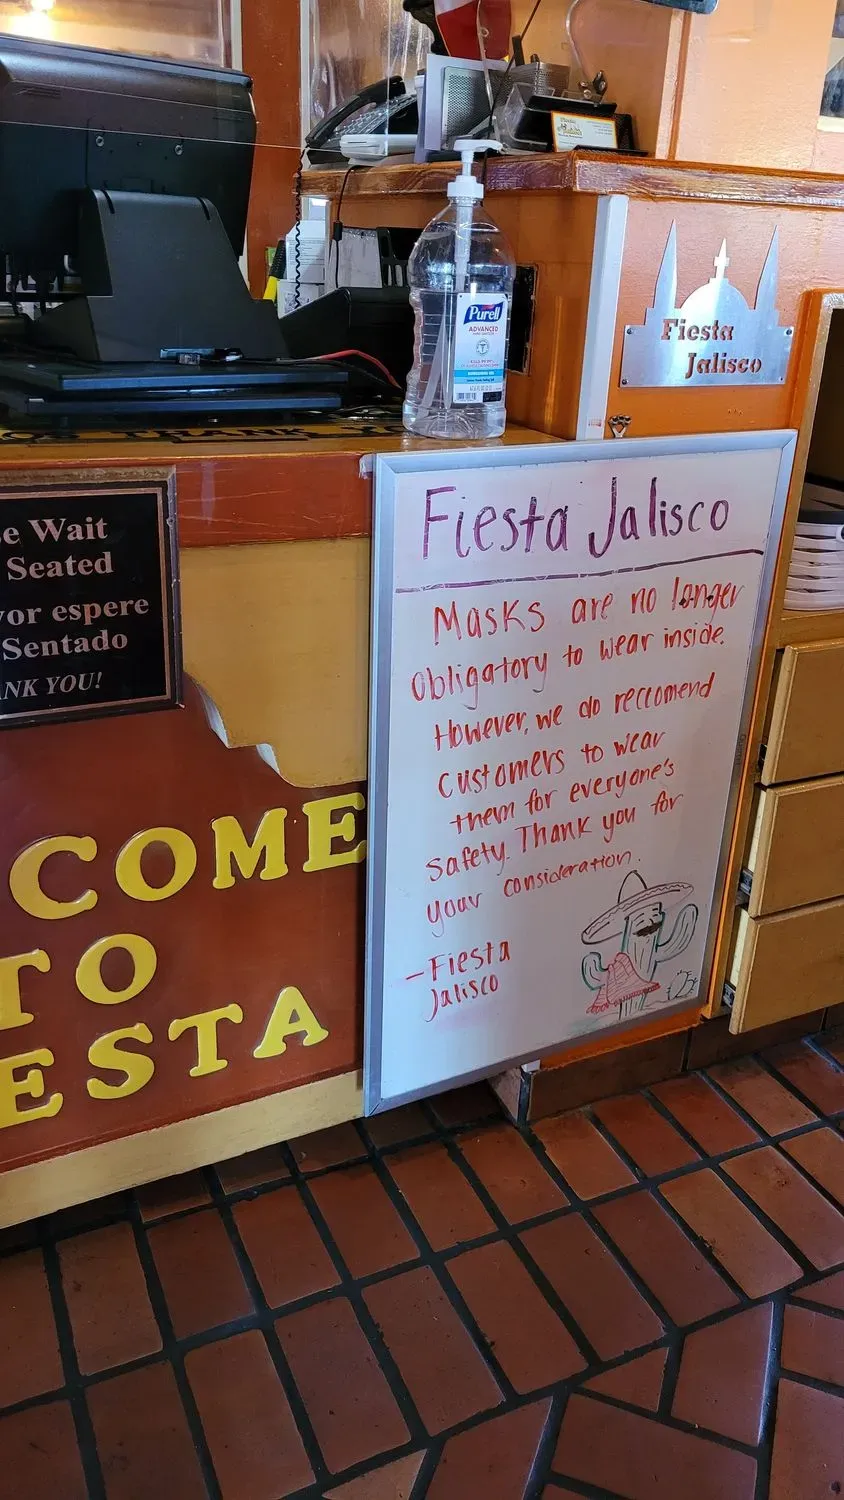 Purell
ADVANCED
Fiesta
Jalisco
THANK
Wait
Seated
espere
Sentado
YOU!
COME
TO
ESTA
Fiesta Jalisco
Masks are no longer
obligatory to wear inside.
However, we do reccomend
customers to wear
them for everyone's
safety. Thank you for
your consideration.
-Fiesta
Jalisco